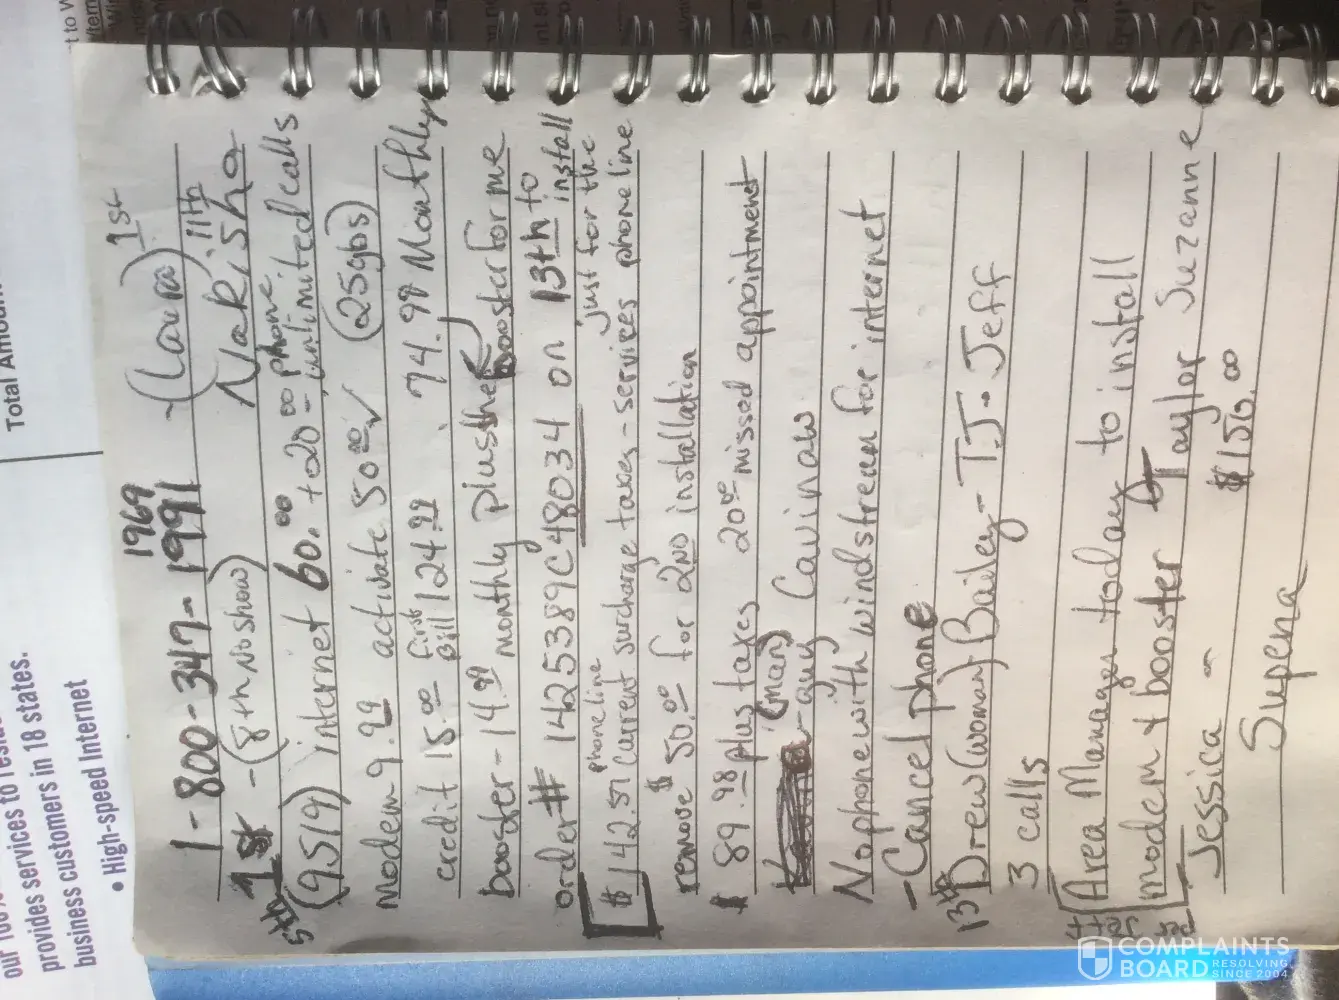 Total Amoun
provides services to reside
our
provides services in 18 states.
business customers
• High-speed Internet
1969
1-800-347-1991 -(Laura) 1st
1st -(8th, No show) Nakisha 11th
5th
(9519) internet 60.00 to 20.00 phone unlimited calls
modem 9.99 activate 50.00 ✓ (25gbs)
credit 15.00 first Bill 124.99 74.98 Monthly
booster - 14.99 monthly plus the booster for me
order# 1425389C48034 on 13th to install
phone line just for the
$142.57 current surcharge taxes - services phone line
remove $50.00 for 2ND installation
$ 89.98 plus taxes 20.00 missed appointment
(man) - guy Cavinaw
No phone with windstream for internet
- Cancel phone
13th Drew (woman) Bailey - T.J - Jeff
3 calls
Area Manager today to install
modem & booster Taylor Suzanne
Jessica - $150.00
Supena
COMPLAINTS
BOARD RESOLVING
SINCE 2004